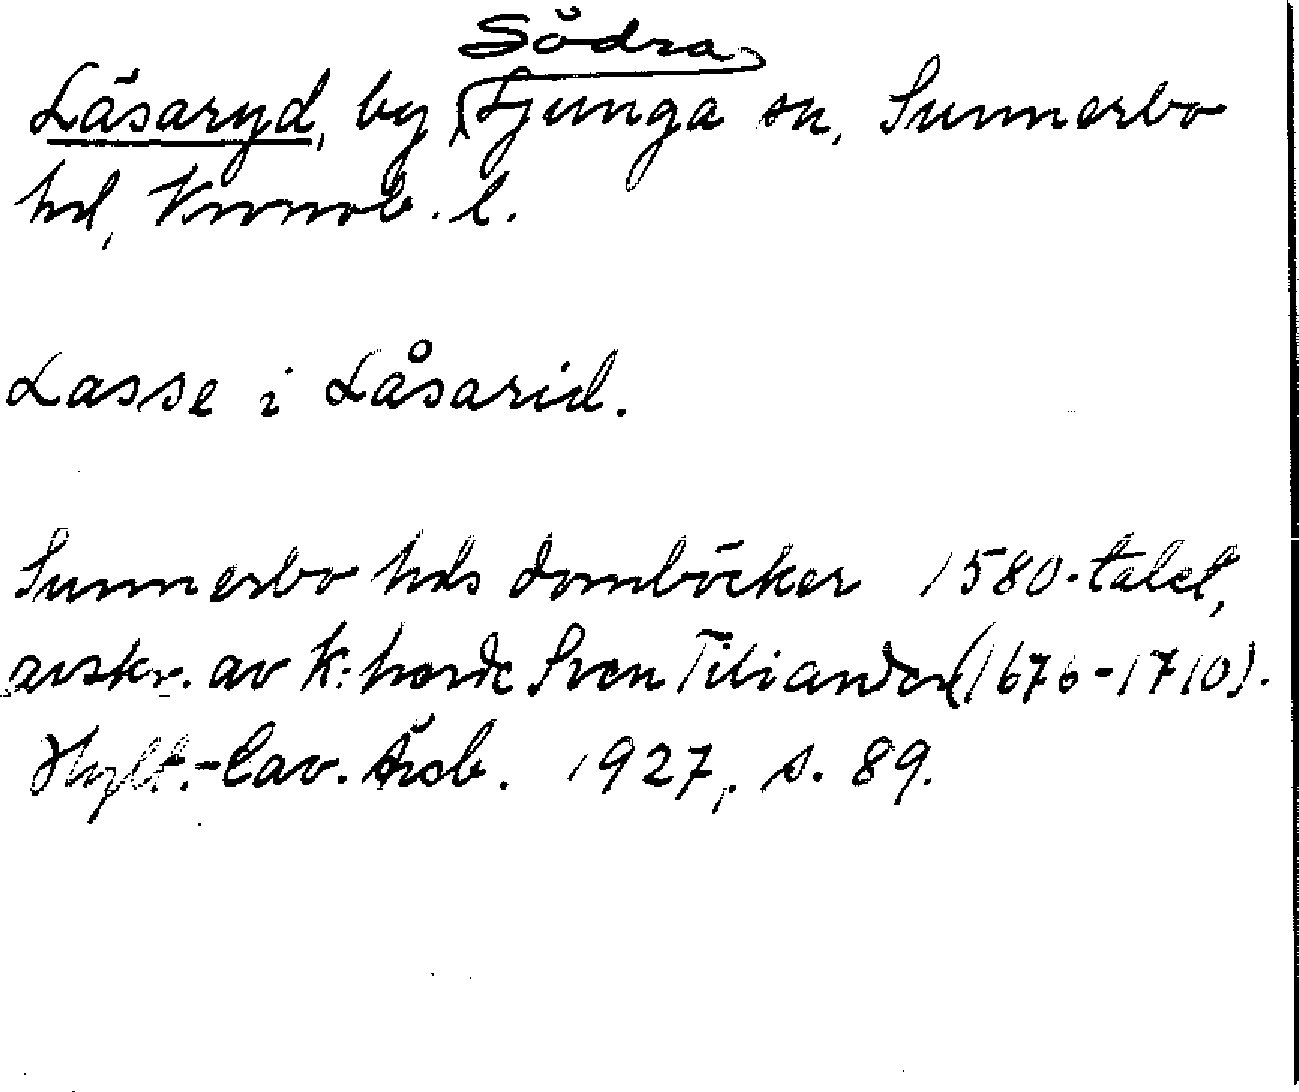 Södra
Läsaryd, by Ljunga sn, Sunnerbo
hd, Kronob. l.
Lasse i Låsarid.
Sunnerbo hds domböcker 1580-talet,
avskr. av K:herde Sven Tiliander (1676-1710).
Hylt.-Cav. Årsb. 1927, s. 89.